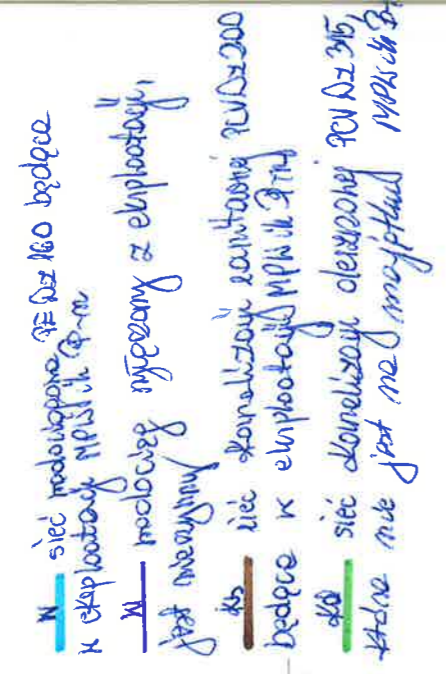 W sieć wodociągowa PE Dz 160 będąca
w eksploatacji MPWiK P-m
W wodociąg wyłączony z eksploatacji,
jest nieczynny
ks sieć kanalizacji sanitarnej PCV Dz 200
będąca w eksploatacji MPWiK P-m
kd sieć kanalizacji deszczowej PCV Dz 315,
która nie jest na majątku MPWiK